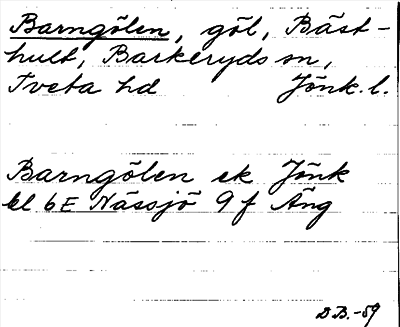 Barngölen, göl, Bäst-
hult, Barkeryds sn,
Tveta hd Jönk. l.
Barngölen ek Jönk
bl 6E Nässjö 9f Äng
D.B.-59